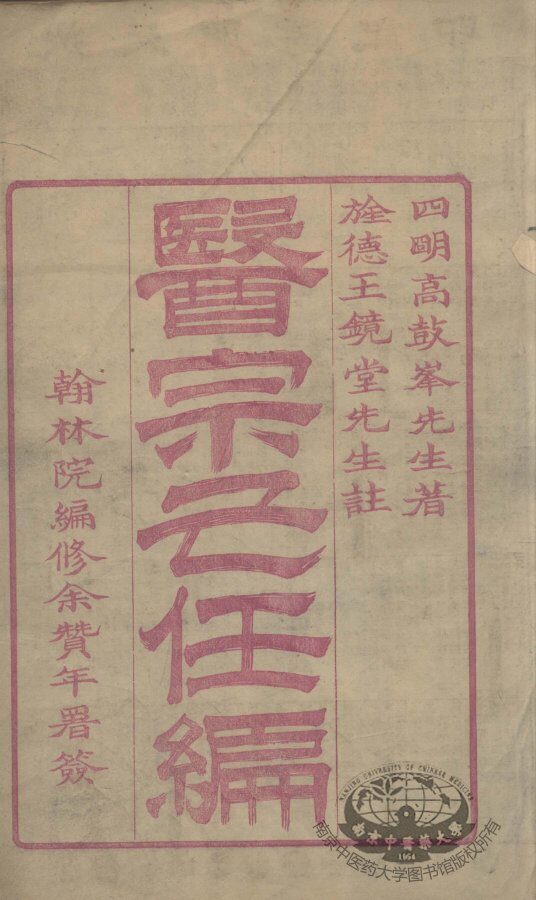 四朙高鼓峯先生著
旌德王鏡堂先生註
醫宗己任編
翰林院編修余贊年署簽
NANJING UNIVERSITY OF CHINESE MEDICINE
南京中醫藥大學
1954
南京中医药大学图书馆版权所有